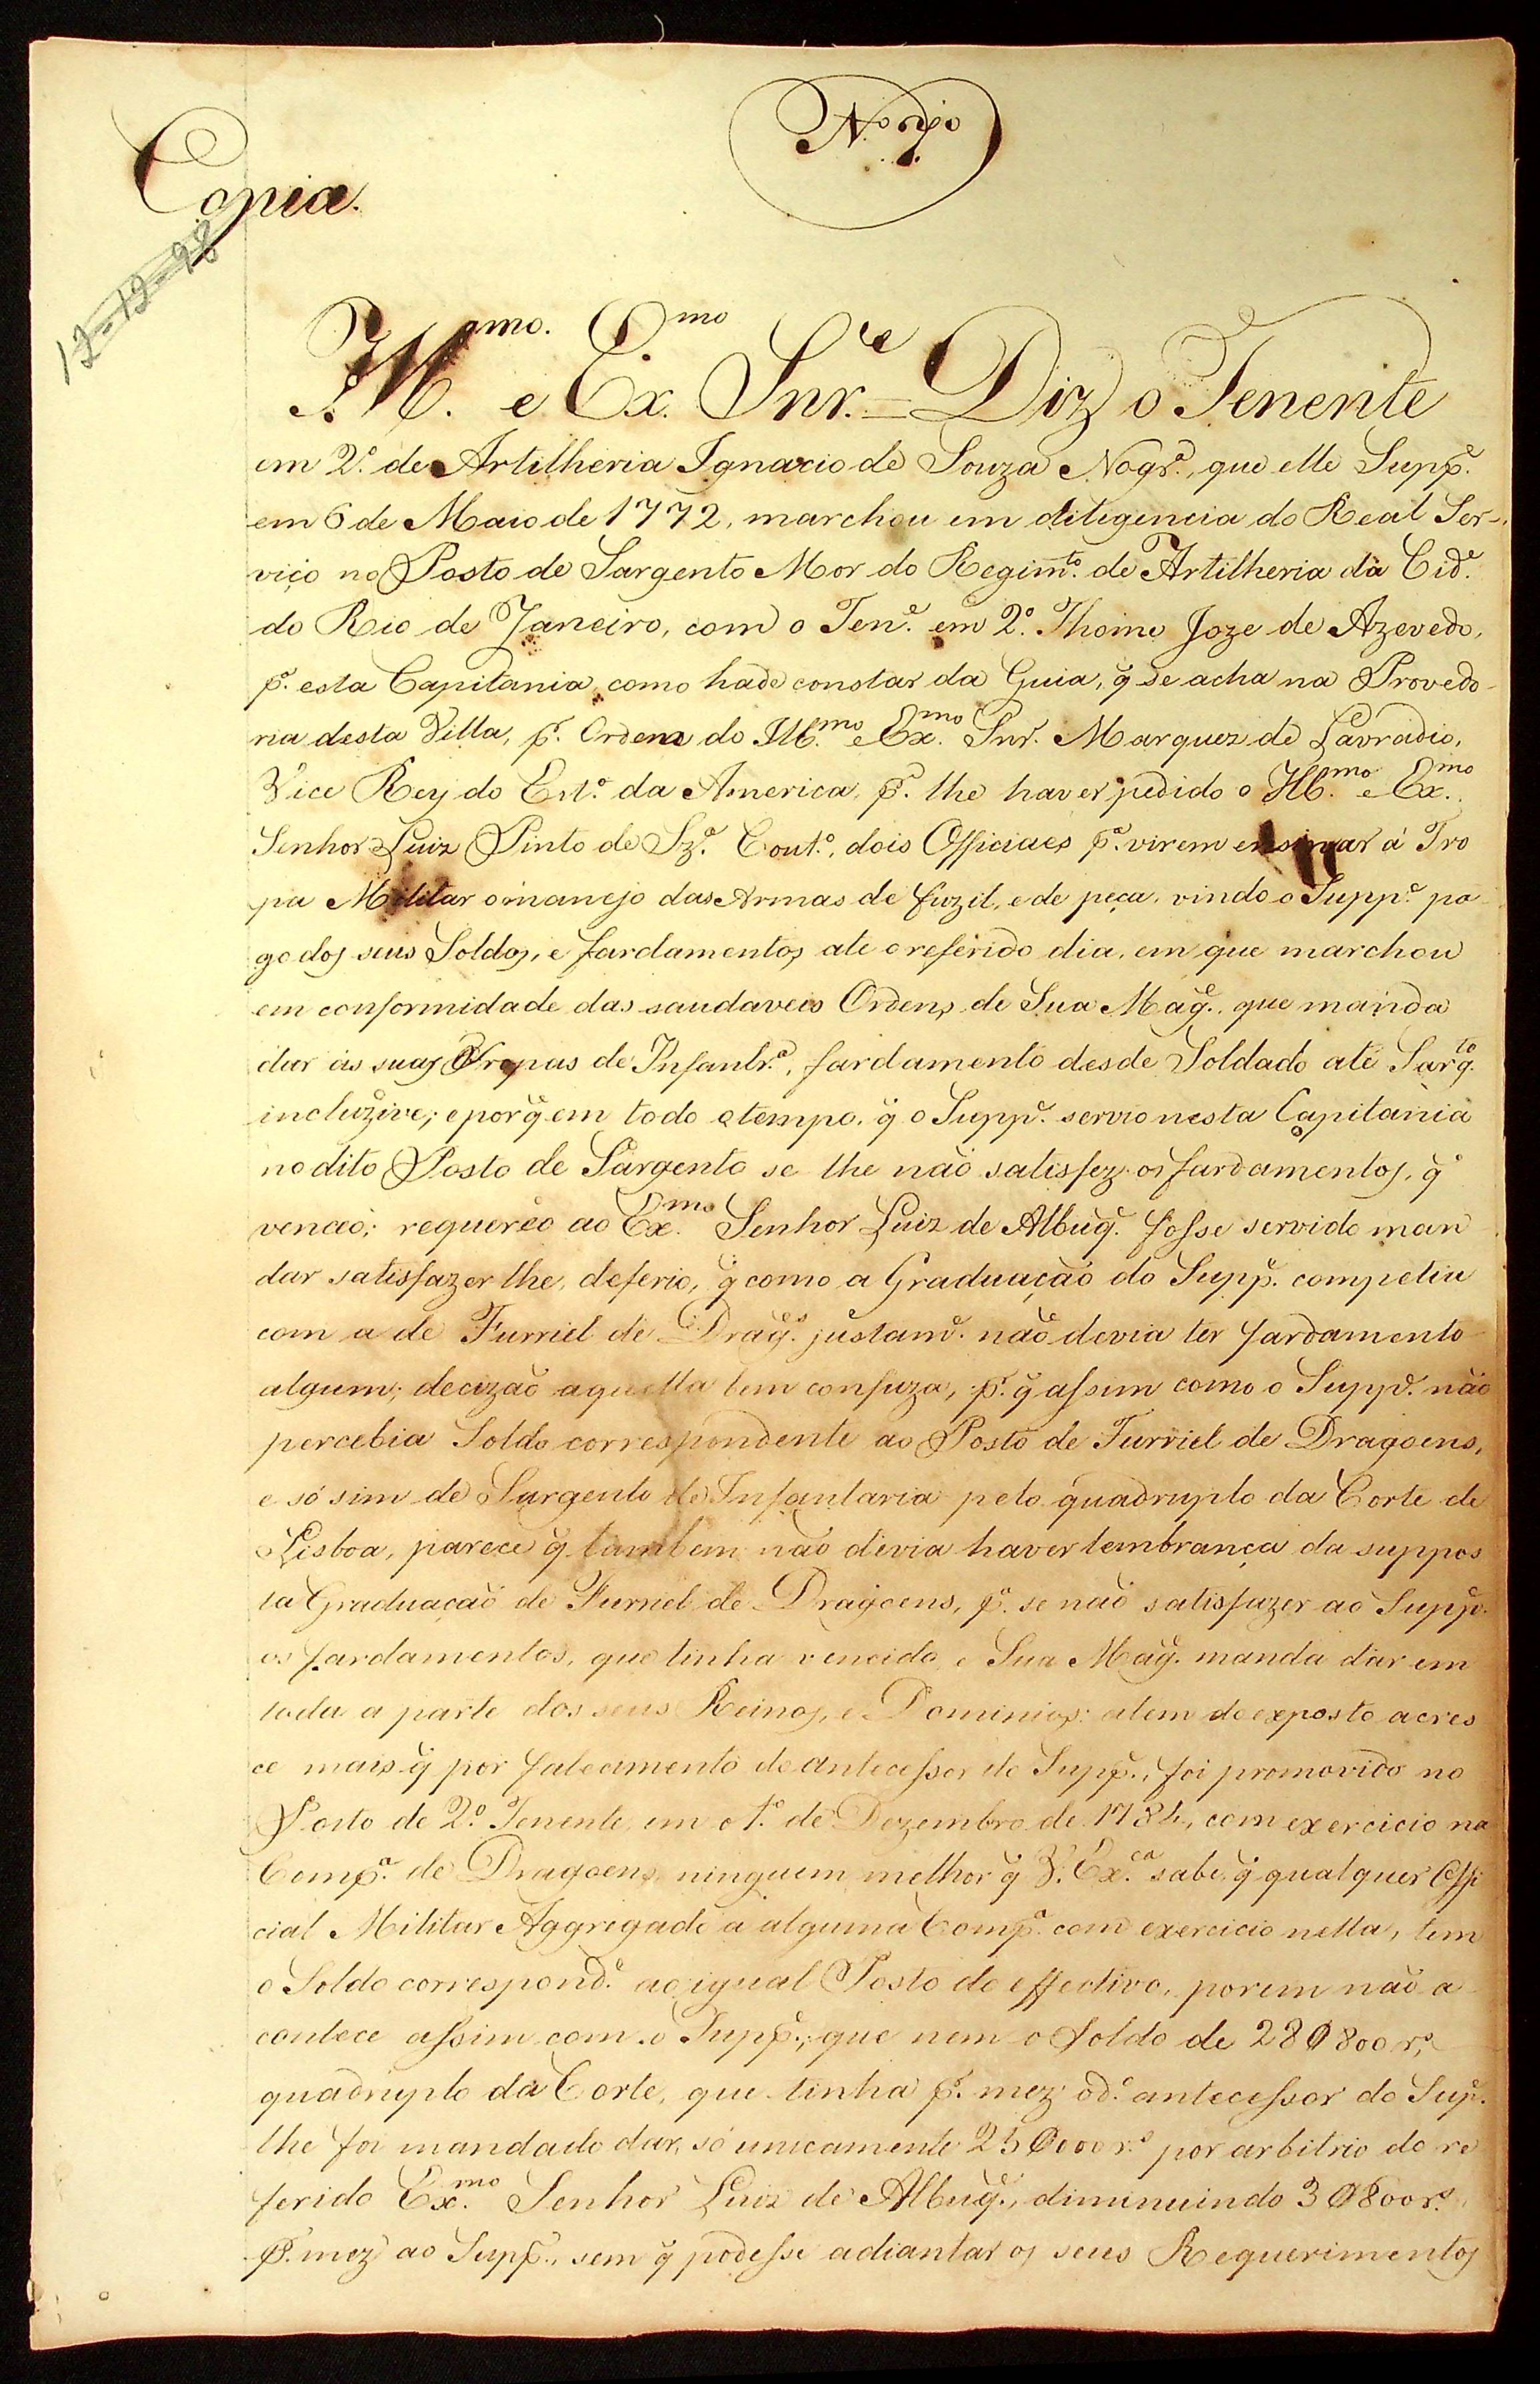 N.º 7.º
Copia.
12-12-98
Ill.mo e Ex.mo Snr.e = Diz o Tenente
em 2.º de Artilheria Ignacio de Souza Nogr.ª, que elle Supp.e
em 6 de Maio de 1772, marchou em diligencia do Real Ser-
viço no Posto de Sargento Mor do Regim.to de Artilheria da Cid.e
do Rio de Janeiro, com o Ten.e em 2.º Thome Joze de Azevedo,
p.ª esta Capitania, como hade constar da Guia, q̃ se acha na Provedo-
ria desta Villa, p.r Ordem do Ill.mo e Ex.mo Snr. Marquez de Lavradio,
Vice Rey do Est.º da America, p.r lhe haver pedido o Ill.mo e Ex.mo
Senhor Luiz Pinto de Sz.ª Cout.º, dois Officiaes p.ª virem ensinar á Tro
pa Militar o manejo das Armas de fuzil, e de peça, vindo o Supp.e pa-
go dos seus Soldos, e fardamentos até o referido dia, em que marchou
em conformidade das saudaveis Ordens de Sua Mag.e, que manda
dar ás suas Tropas de Infantr.ª, fardamento desde Soldado até Sarg.to
incluzive; e porq̃ em todo o tempo, q̃ o Supp.e servio nesta Capitania
no dito Posto de Sargento se lhe não satisfez os fardamentos, q̃
venceo; requereo ao Ex.mo Senhor Luiz de Albuq.e fosse servido man
dar satisfazer lhe, deferio, q̃ como a Graduação do Supp.e competia
com a de Furriel de Drag.es justam.e não devia ter fardamento
algum; decizão aquella bem confuza, p.r q̃ assim como o Supp.e não
percebia Soldo correspondente ao Posto de Furriel de Dragoens,
e só sim de Sargento de Infantaria pelo quadruplo da Corte de
Lisboa, parece q̃ tambem não devia haver lembrança da suppos
ta Graduação de Furriel de Dragoens, p.ª se não satisfazer ao Supp.e
os fardamentos, que tinha vencido, e Sua Mag.e manda dar em
toda a parte dos seus Reinos, e Dominios: alem do exposto acres
ce mais q̃ por falecimento do antecessor do Supp.e, foi promovido no
Posto de 2.º Tenente em o 1.º de Dezembro de 1784, com exercicio na
Comp.ª de Dragoens, ninguem melhor q̃ V. Ex.ca sabe, q̃ qualquer Offi
cial Militar Aggregado a alguma Comp.ª com exercicio nella, tem
o Soldo correspond.e ao igual Posto do effectivo, porem não a
contece assim com o Supp.e, que nem o Soldo de 28$800 r.s
quadruplo da Corte, que tinha p.r mez o d.º antecessor do Sup.e
lhe foi mandado dar, só unicamente 25$000 r.s por arbitrio do re
ferido Ex.mo Senhor Luiz de Albuq.e, diminuindo 3$800 r.s
p.r mez ao Supp.e, sem q̃ podesse adiantar os seus Requerimentos